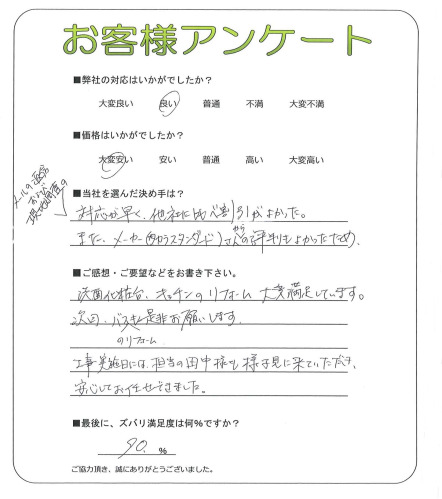 お客様アンケート
■弊社の対応はいかがでしたか？
大変良い 良い 普通 不満 大変不満
■価格はいかがでしたか？
大変安い 安い 普通 高い 大変高い
メールの返答
および
現地調査の
■当社を選んだ決め手は？
対応が早く、他社に比べ割引がよかった。
また、メーカー(タカラスタンダード)さんからの評判もよかったため。
■ご感想・ご要望などをお書き下さい。
洗面化粧台、キッチンのリフォーム 大変満足しています。
次回、バスも是非お願いします。
のリフォーム
工事実施日には、担当の田中様も様子見に来ていただき、
安心してお任せできました。
■最後に、ズバリ満足度は何％ですか？
90. %
ご協力頂き、誠にありがとうございました。